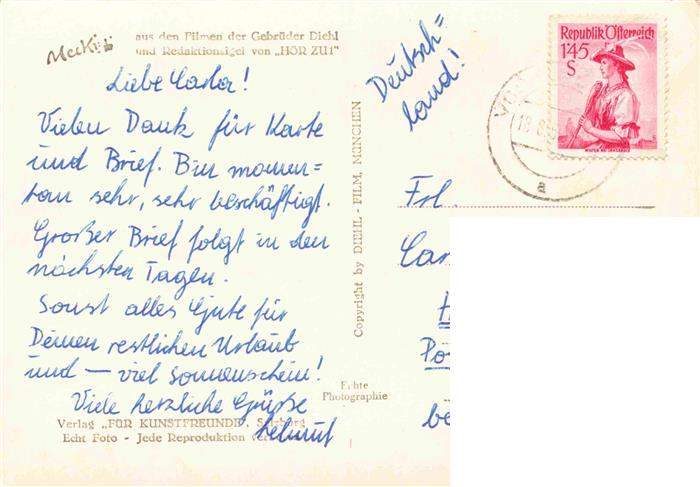 Mecki
aus den Filmen der Gebrüder Diehl
und Redaktionsigel von „HÖR ZU!"
Liebe Carla!
Vielen Dank für Karte
und Brief. Bin momen=
tan sehr, sehr beschäftigt.
Großer Brief folgt in den
nächsten Tagen.
Sonst alles Gute für
Deinen restlichen Urlaub
und — viel Sonnenschein!
Viele herzliche Grüße
Helmut
Verlag „FÜR KUNSTFREUNDE", Salzburg
Echt Foto - Jede Reproduktion
Echte
Photographie
Copyright by DIEHL - FILM, MÜNCHEN
Deutsch=
land!
Republik Österreich
1.45
S
18
Frl.
Car
Po
be